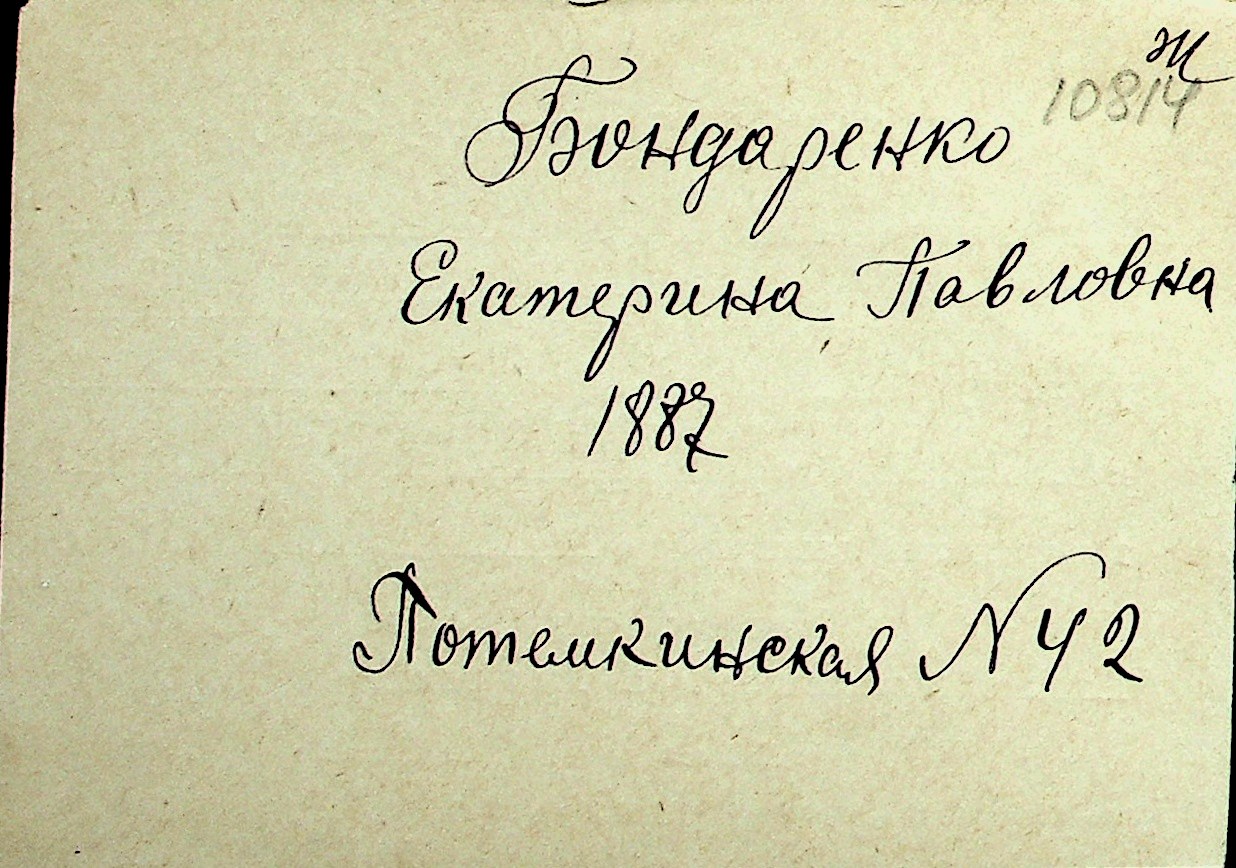 ж
10814
Бондаренко
Екатерина Павловна
1887
Потемкинская N 42